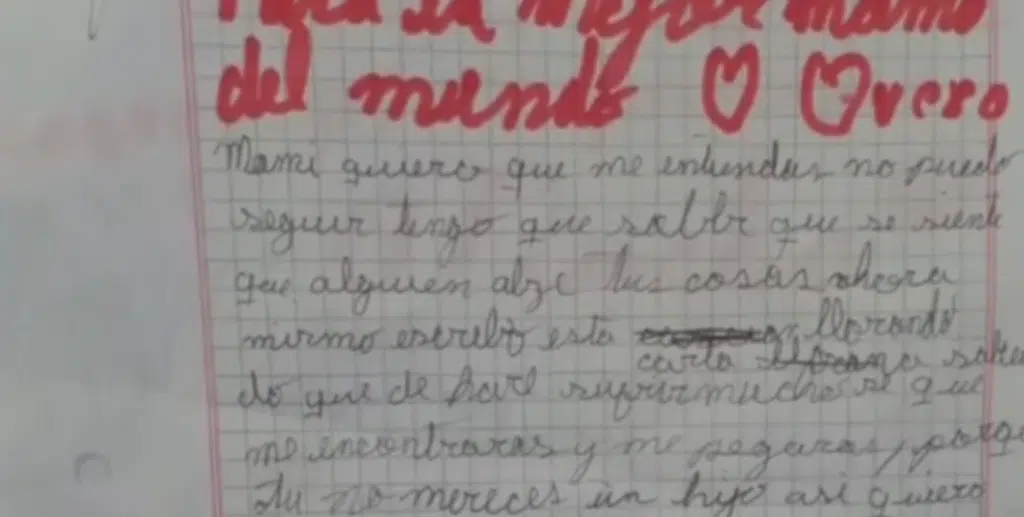 Para la mejor mamá
del mundo Vero
Mami quiero que me entiendas no puedo
seguir tengo que saber que se siente
que alguien alze tus cosas ahora
mismo escribo esta llorando
carta
do que de hare sufrir mucho se que
me encontraras y me pegaras, porqu
tu no mereces un hijo asi quiero